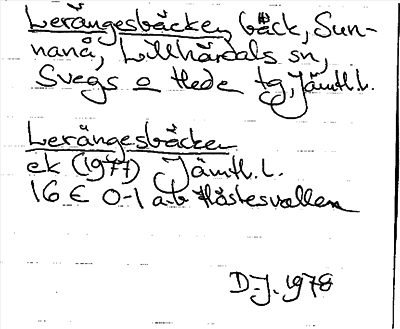 Lerängesbäcken, bäck, Sun-
nanå, Lillhärdals sn,
Svegs o Hede tg, Jämtl.l.
Lerängesbäcken
ek (1977) Jämtl.L.
16 E 0-1 a-b Håstesvallen
D-J. 1978